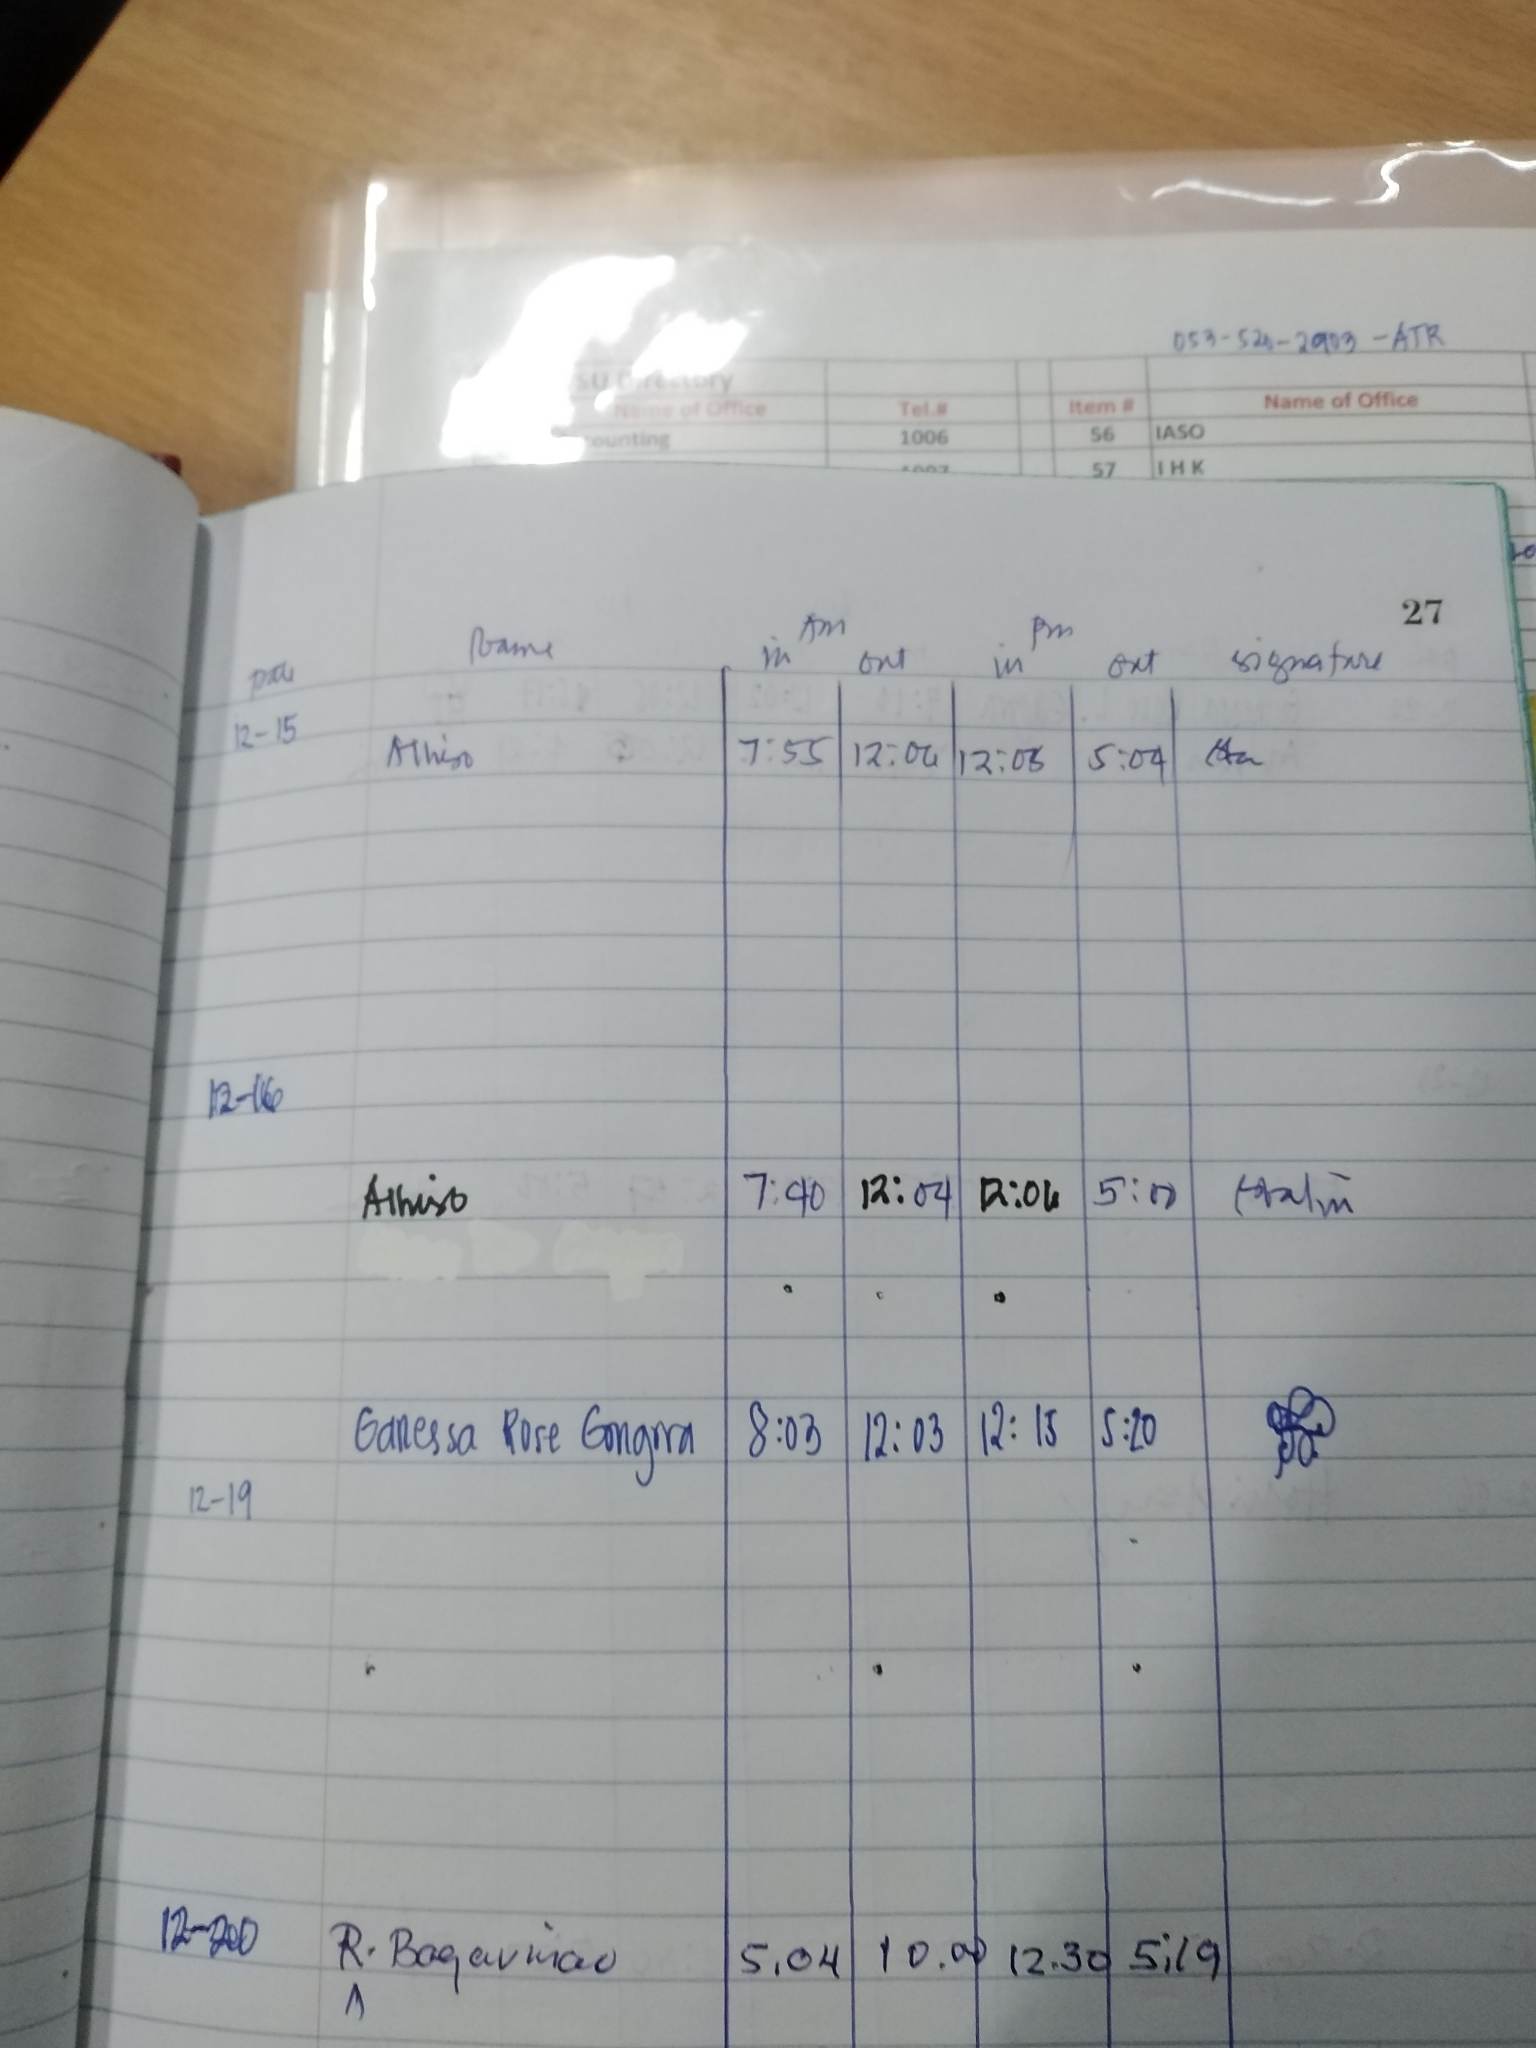 053-520-2903 -ATR
SU Directory
Name of Office Tel.# Item # Name of Office
counting 1006 56 IASO
1007 57 I H K
27
Am Pm
Date Name in out in out signature
12-15
7:55 12:04 12:05 5:04
12-16
7:40 12:04 12:06 5:00
Ganessa Rose Gongora 8:03 12:03 12:15 5:20
12-19
12-20
R. Bagavinao 5.04 10.00 12.30 5:19